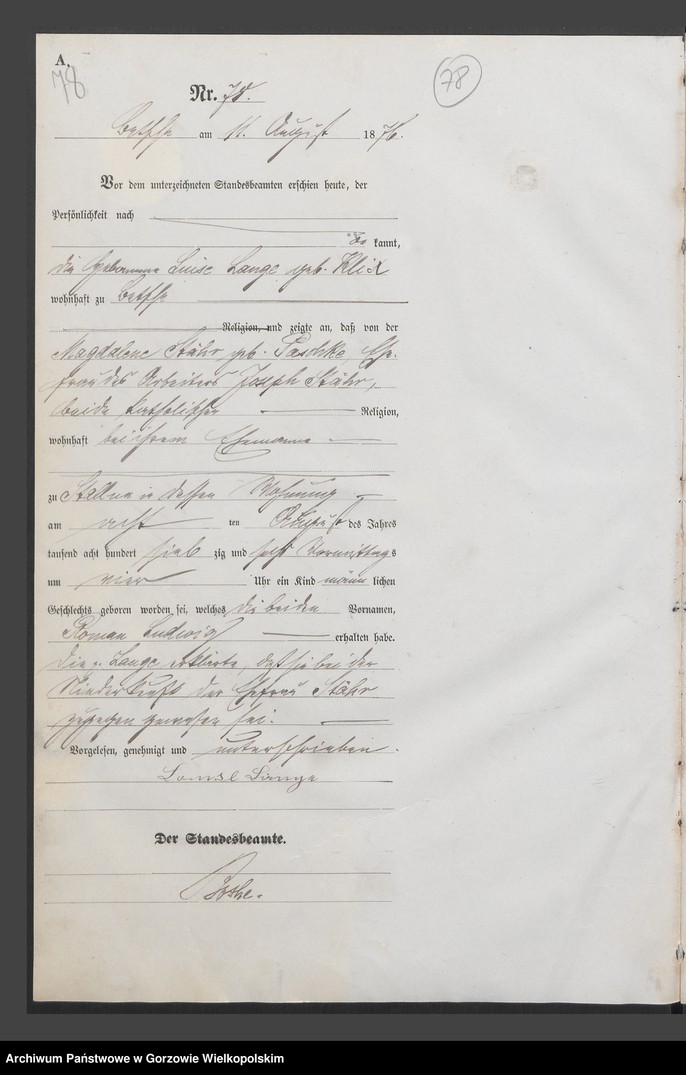 A.
78
78
Nr. 78.
Betsche am 11. August 1876.
Vor dem unterzeichneten Standesbeamten erschien heute, der
Persönlichkeit nach
be kannt,
die Hebamme Luise Lange geb. Klix
wohnhaft zu Betsche
Religion, und zeigte an, daß von der
Magdalene Stähr geb. Paschke Ehe-
frau des Arbeiters Joseph Stähr,
beide katholischer Religion,
wohnhaft bei ihrem Ehemanne
zu in dessen Wohnung
am acht ten August des Jahres
tausend acht hundert sieb zig und sechs Vormittags
um vier Uhr ein Kind männ lichen
Geschlechts geboren worden sei, welches die beiden Vornamen,
Roman Ludwig erhalten habe.
Die Lange erklärte, daß sie bei der
Niederkunft der Ehefrau Stähr
zugegen gewesen sei.
Vorgelesen, genehmigt und unterschrieben.
Lange
Der Standesbeamte.
Archiwum Państwowe w Gorzowie Wielkopolskim